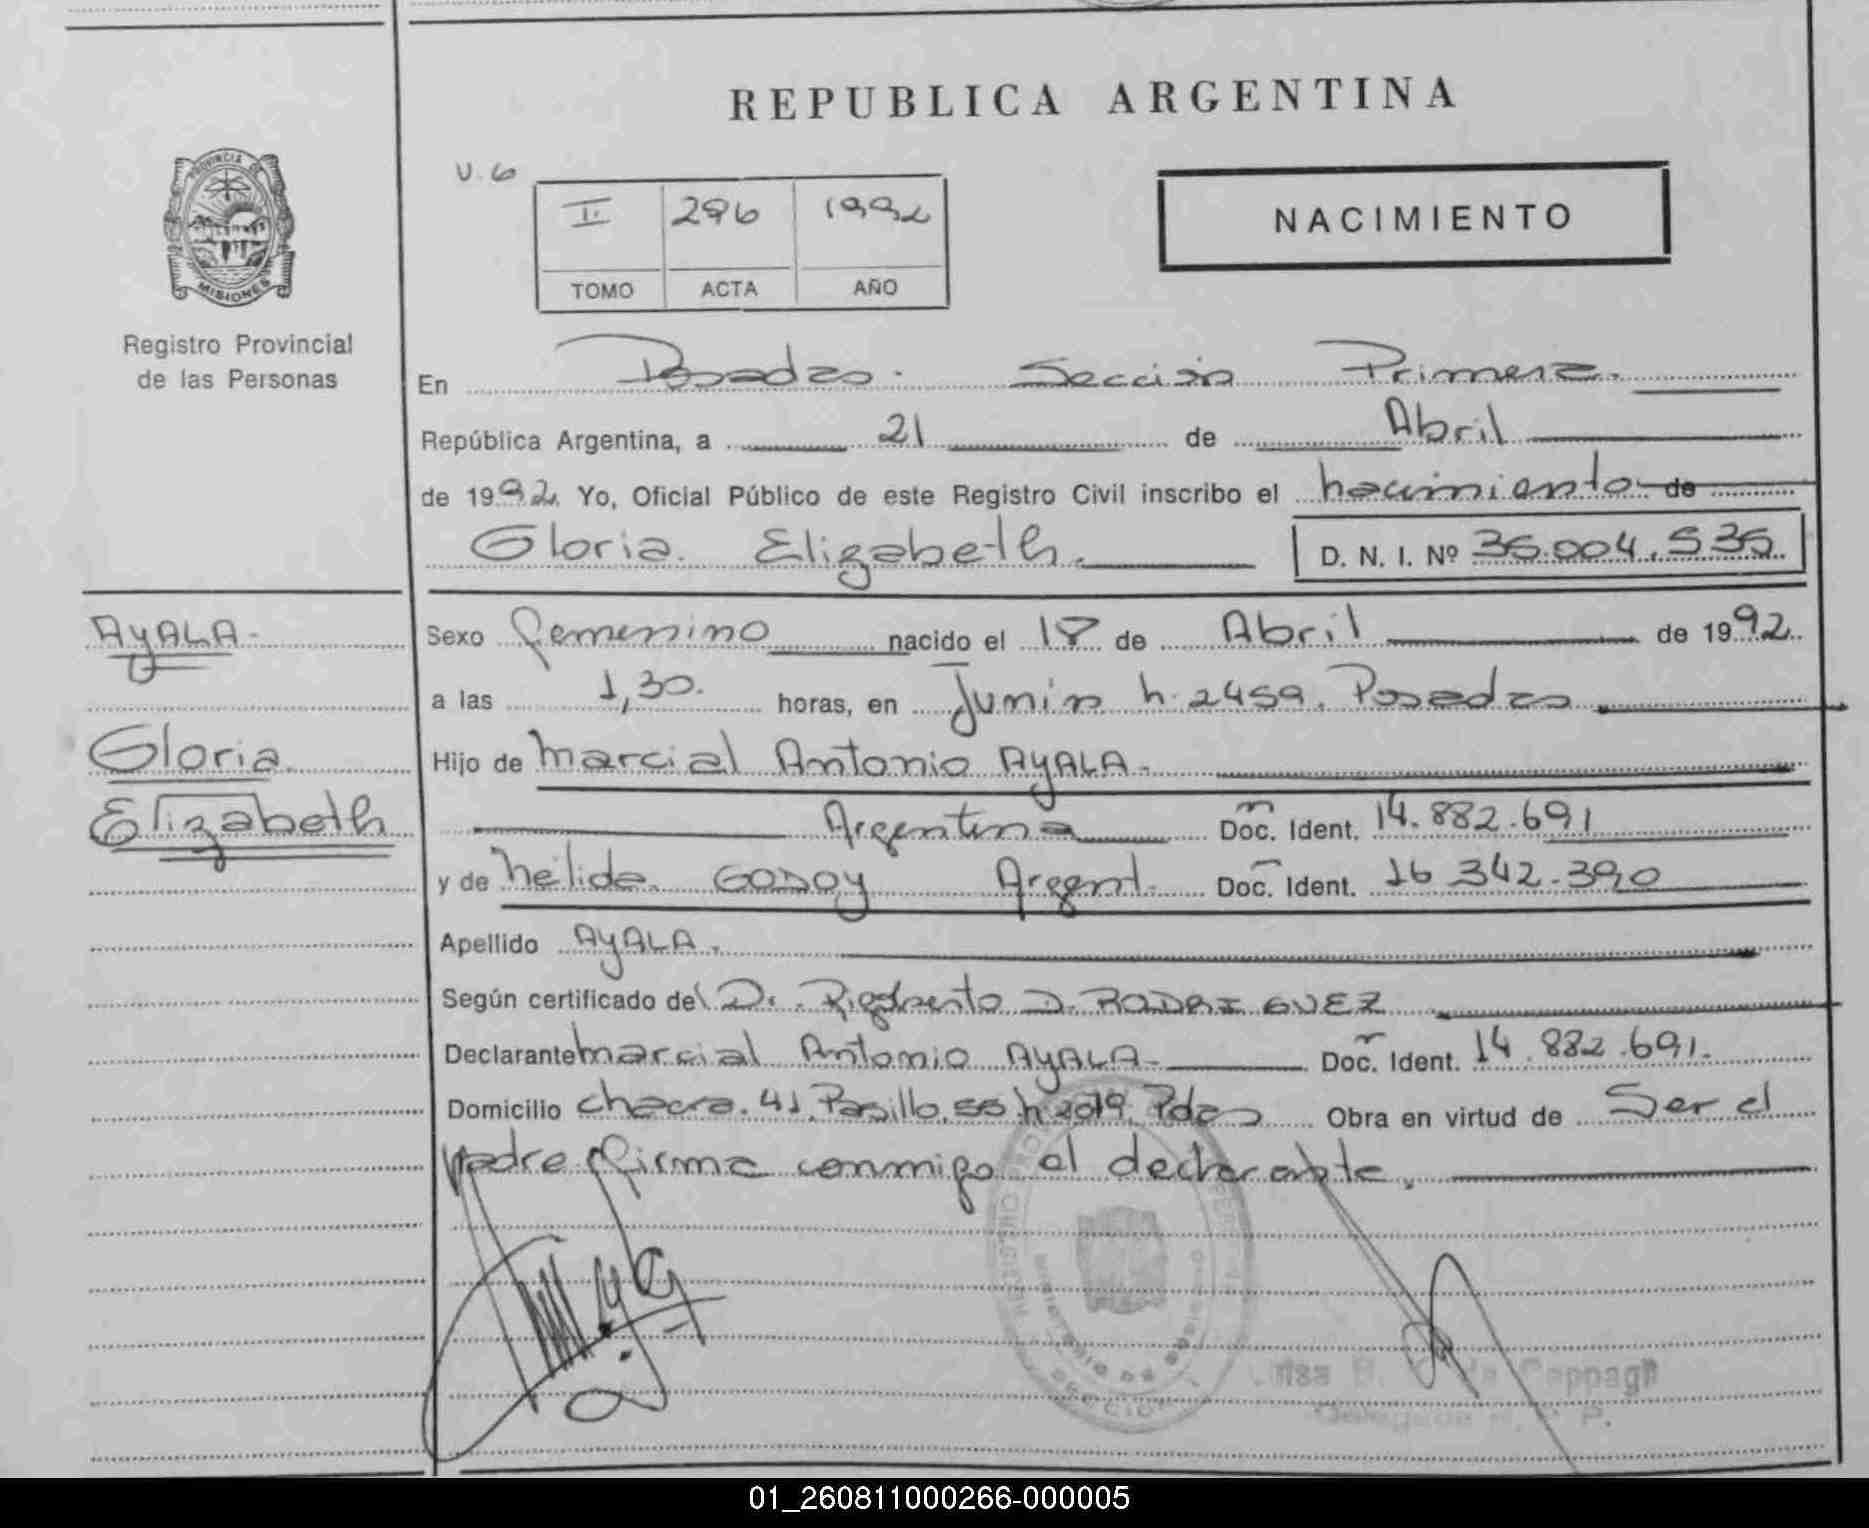 REPUBLICA ARGENTINA
PROVINCIA DE MISIONES
Registro Provincial
de las Personas
V. 6
II 296 1992
TOMO ACTA AÑO
NACIMIENTO
En Posadas. Sección Primera.
República Argentina, a 21 de Abril
de 1992 Yo, Oficial Público de este Registro Civil inscribo el nacimiento de
Gloria Elizabeth. D. N. I. Nº 36.004.535
AYALA
Gloria
Elizabeth
Sexo femenino nacido el 18 de Abril de 1992
a las 1,30. horas, en Junin n. 2459. Posadas
Hijo de Marcial Antonio AYALA
Argentina Doc. Ident. 14.882.691
y de Nélida GODOY Argent. Doc. Ident. 16 342.390
Apellido AYALA.
Según certificado del Dr. Rigoberto D. RODRIGUEZ
Declarante Marcial Antonio AYALA Doc. Ident. 14.882.691.
Domicilio chacra. 41. Pasillo. 55. n. 2019. Pdas Obra en virtud de Ser el
padre firma conmigo el declarante.
de Cappagli
01_260811000266-000005